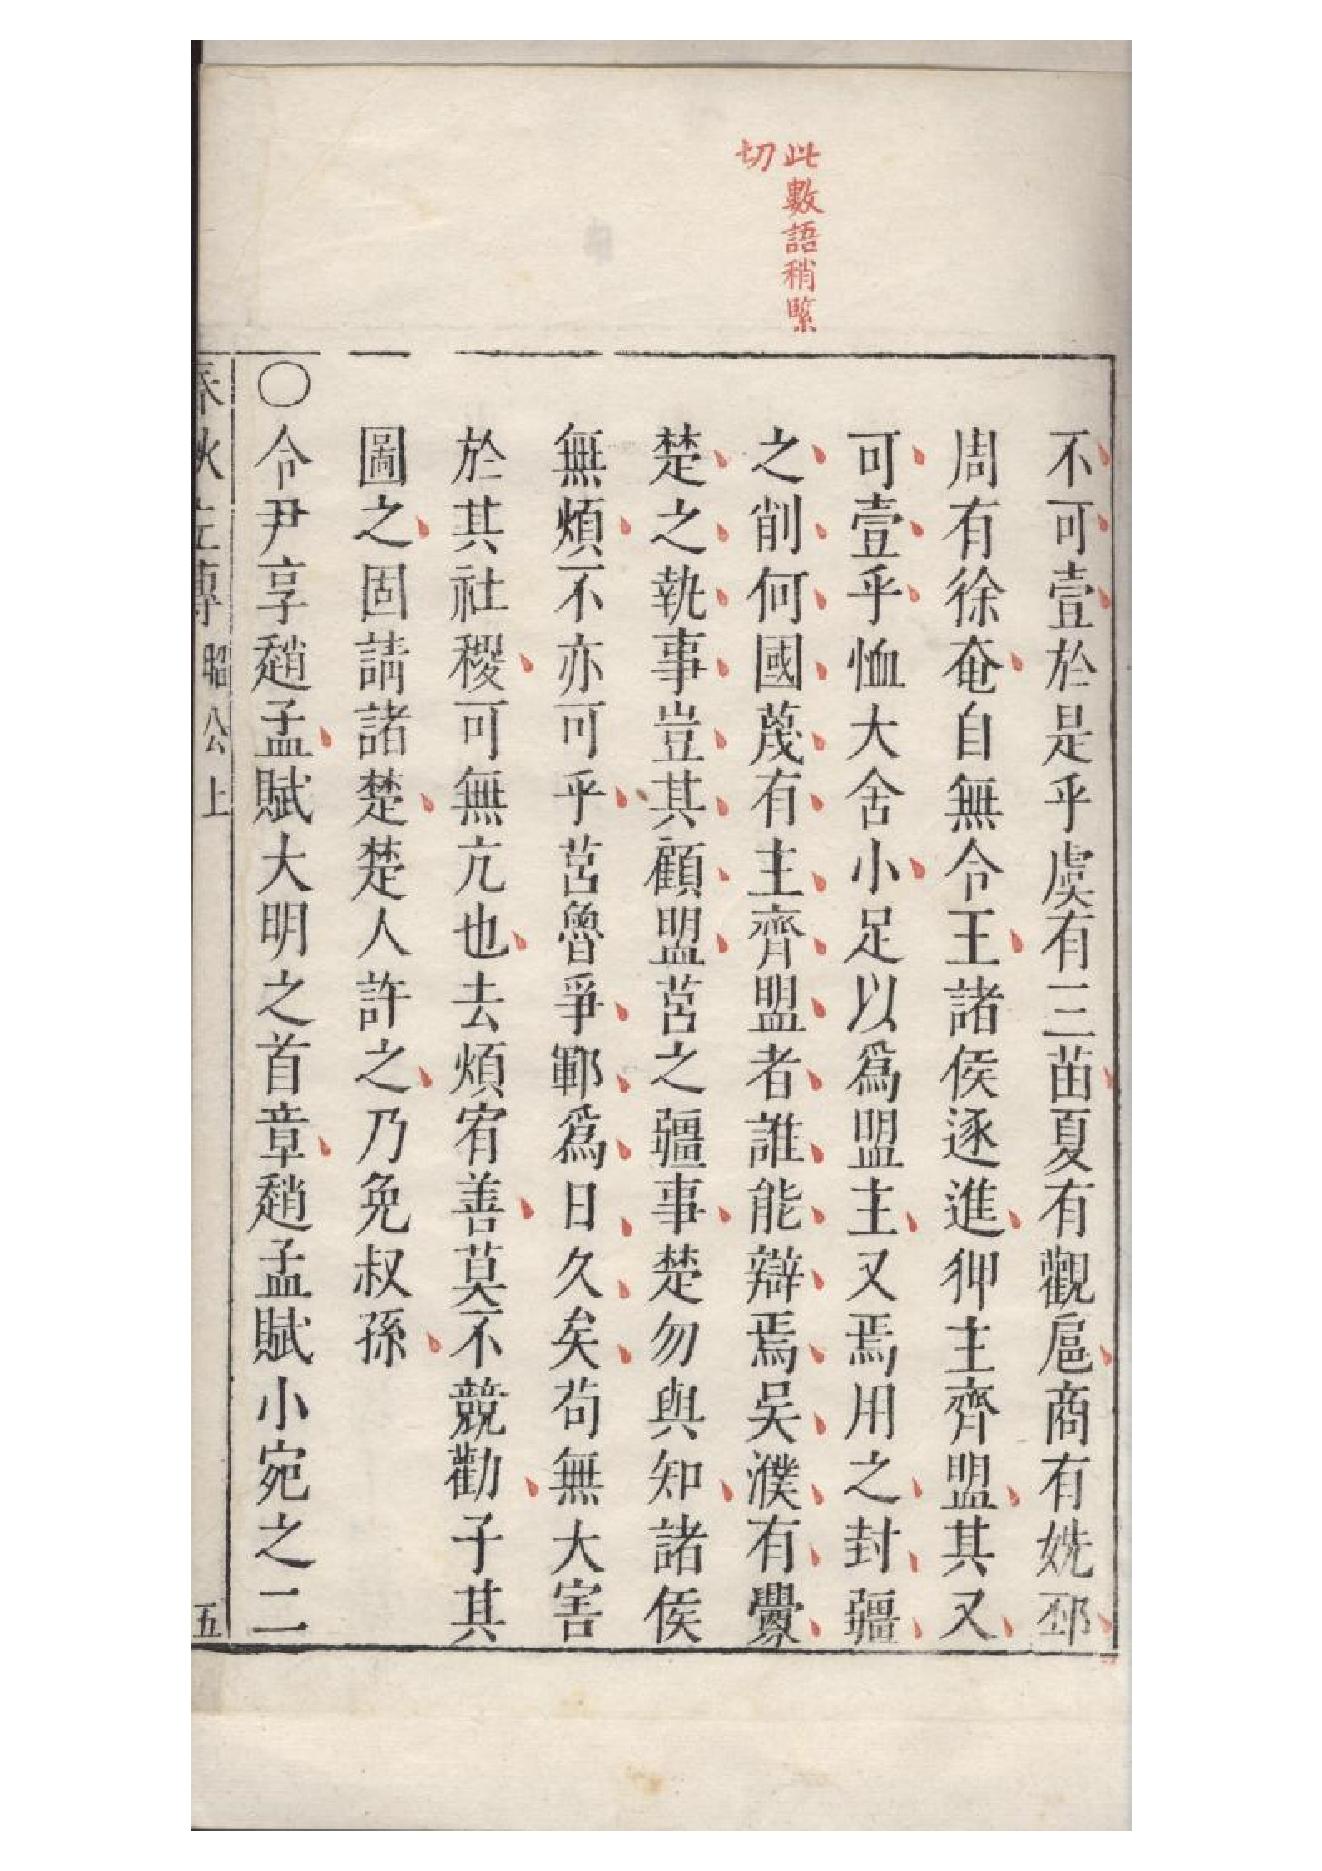 此數語稍緊
切
不可壹於是乎虞有三苗夏有觀扈商有姺邳
周有徐奄自無令王諸侯逐進狎主齊盟其又
可壹乎恤大舍小足以爲盟主又焉用之封疆
之削何國蔑有主齊盟者誰能辯焉吳濮有釁
楚之執事豈其顧盟莒之疆事楚勿與知諸侯
無煩不亦可乎莒魯爭鄆爲日久矣苟無大害
於其社稷可無亢也去煩宥善莫不競勸子其
圖之固請諸楚楚人許之乃免叔孫
○令尹享趙孟賦大明之首章趙孟賦小宛之二
春秋左傳 昭公上 五